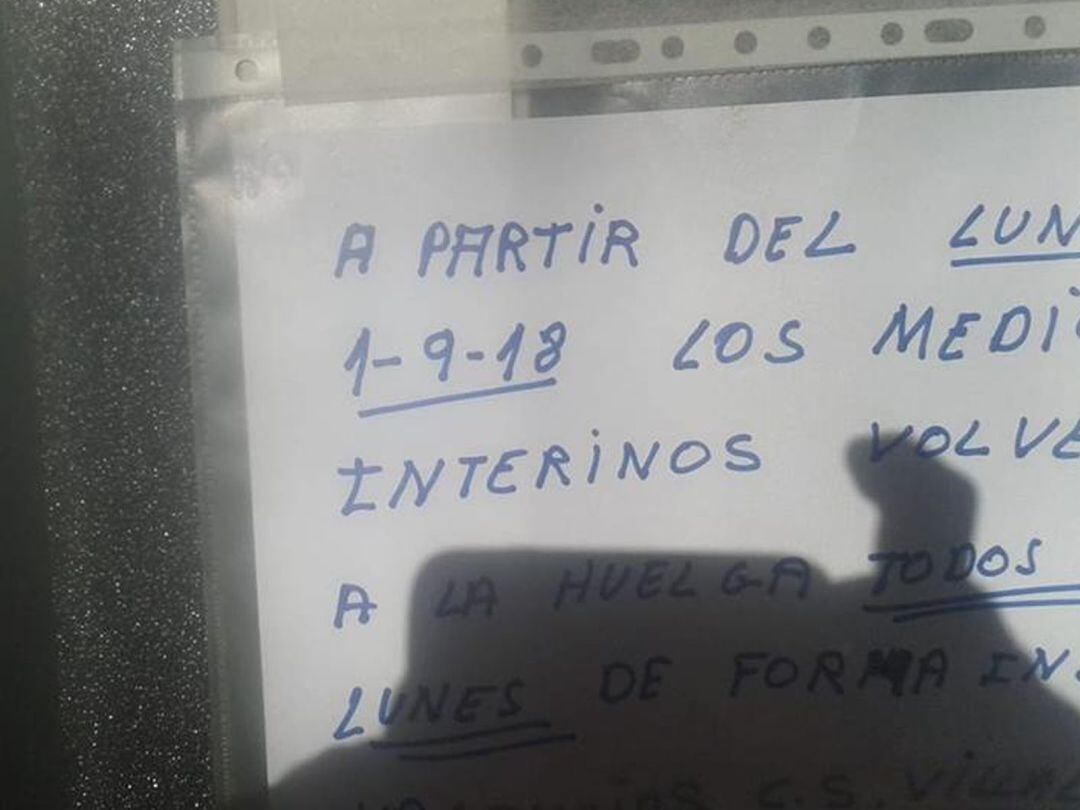 A PARTIR DEL LUN
1-9-18 LOS MEDIC
INTERINOS VOLVE
A LA HUELGA TODOS
LUNES DE FORMA IN
C.S.